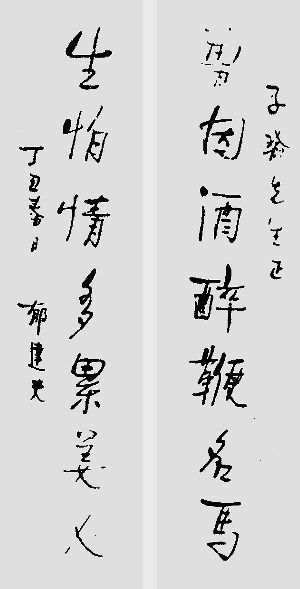 子 先生正
曾因酒醉鞭名馬
生怕情多累美人
丁丑春日 郁達夫